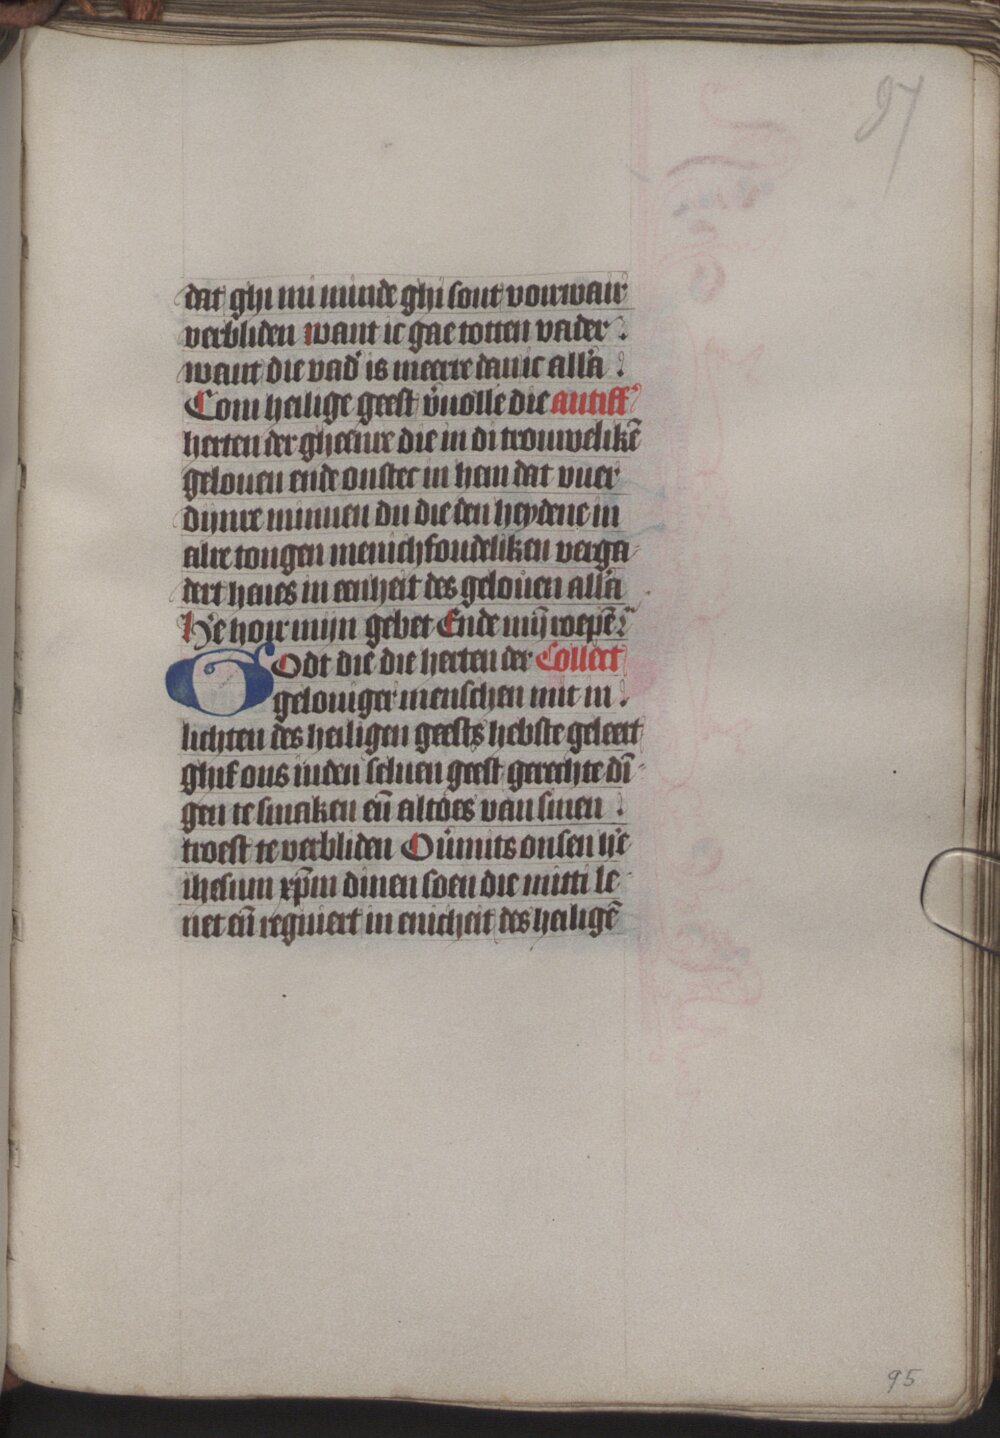 97
dat ghi mi minde ghi sout vourwair
verbliden want ic gae totten vader
want die vad' is meerre dan ic all'a
Com heilige geest v'uolle die antiff'
herten der gheenre die in di trouwelikē
gelouen ende onstec in hem dat vuer
dijnre minnen du die den heydene in
alre tongen menichfoudeliken verga
dert heues in eenheit des gelouen all'a
He' hoir mijn gebet Ende mij roepē
Godt die die herten der Collect
geloniger menschen mit in
lichten des heiligen geests hebste geleert
ghif ons inden seluen geest gerechte dī
gen te smaken eñ altoes van sinen
troest te verbliden Ou'mits onsen he'
ihesum xp̄m dinen soen die mitti le
uet eñ regniert in enicheit des heiligē
95